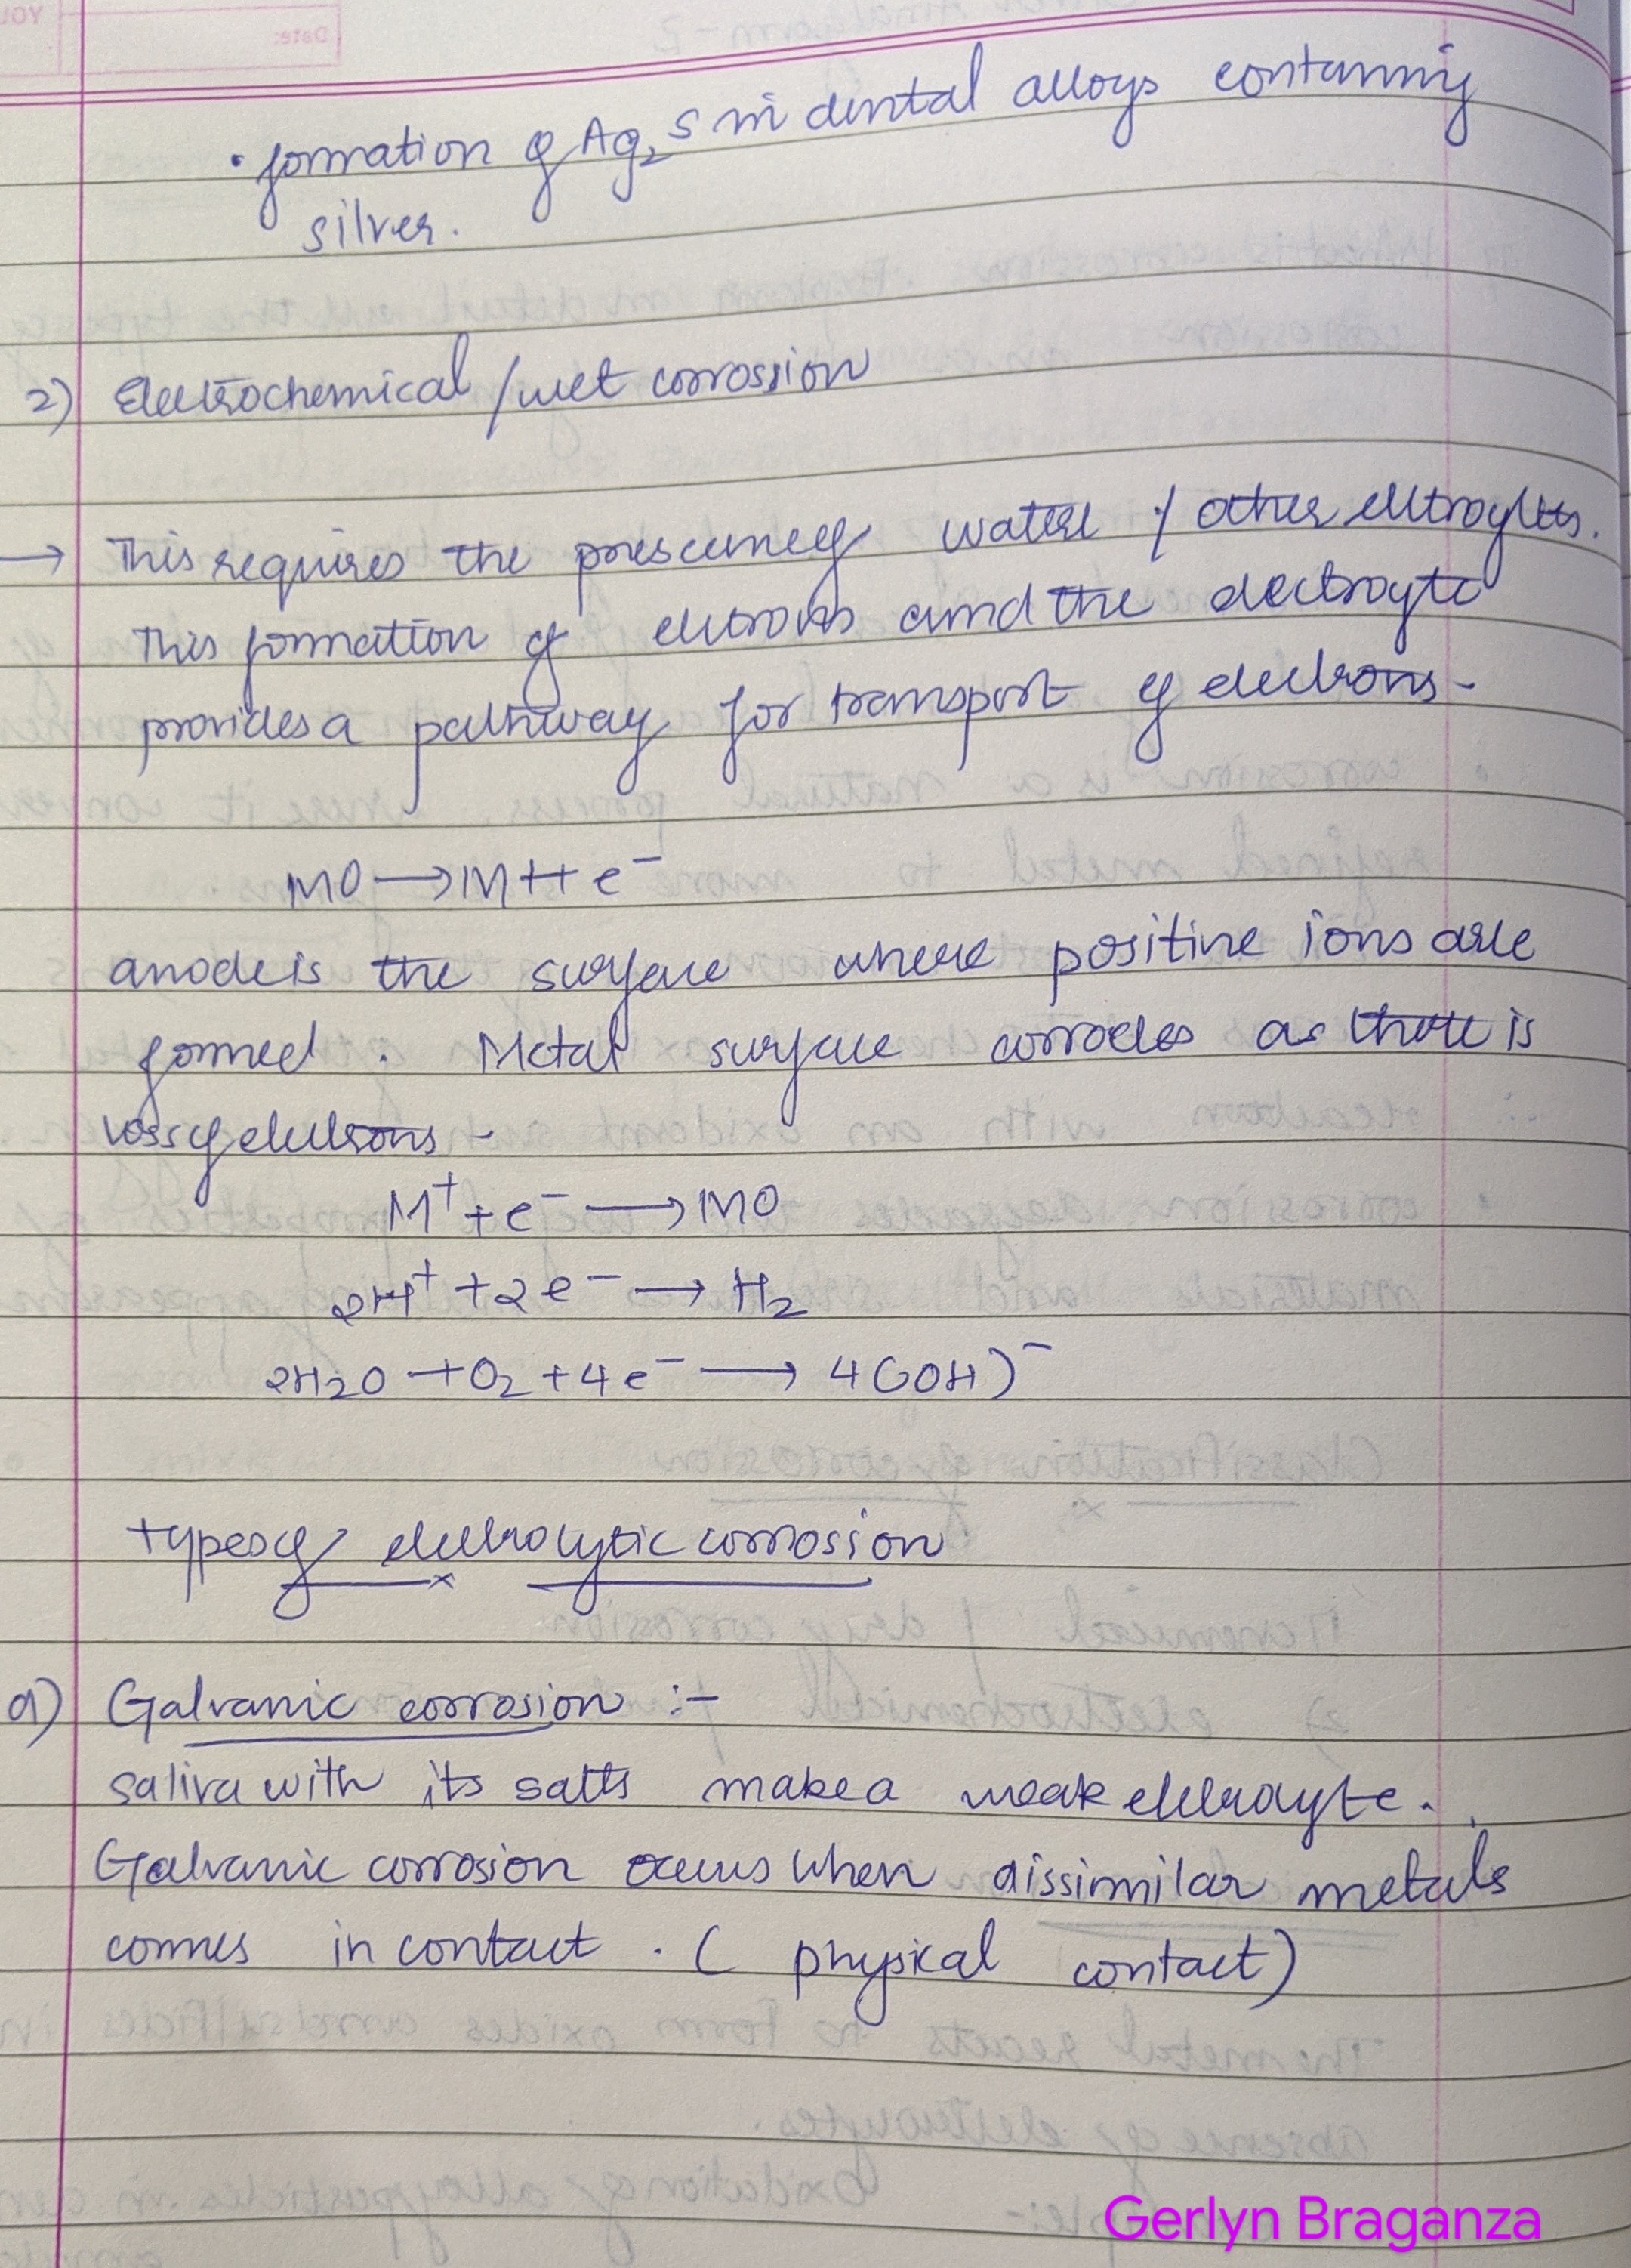 • formation of Ag₂S in dental alloys containing
silver.
2) Electrochemical / wet corrossion
→ This requires the presence of water / other eltroyltes.
This formation of elctrons and the electroyte
provides a pathway for transport of electrons -
MO → M++ e⁻
anode is the surface where positive ions are
formed. Metal surface corrodes as there is
loss of electrons -
M⁺ + e⁻ → MO
2H⁺ + 2e⁻ → H₂
2H2O + O₂ + 4e⁻ → 4(OH)⁻
types of electrolytic corrosion
a) Galvanic corrosion :-
saliva with its salts make a weak elelraoyte.
Galvanic corrosion occurs when dissimilar metals
comes in contact. ( physical contact)
Gerlyn Braganza